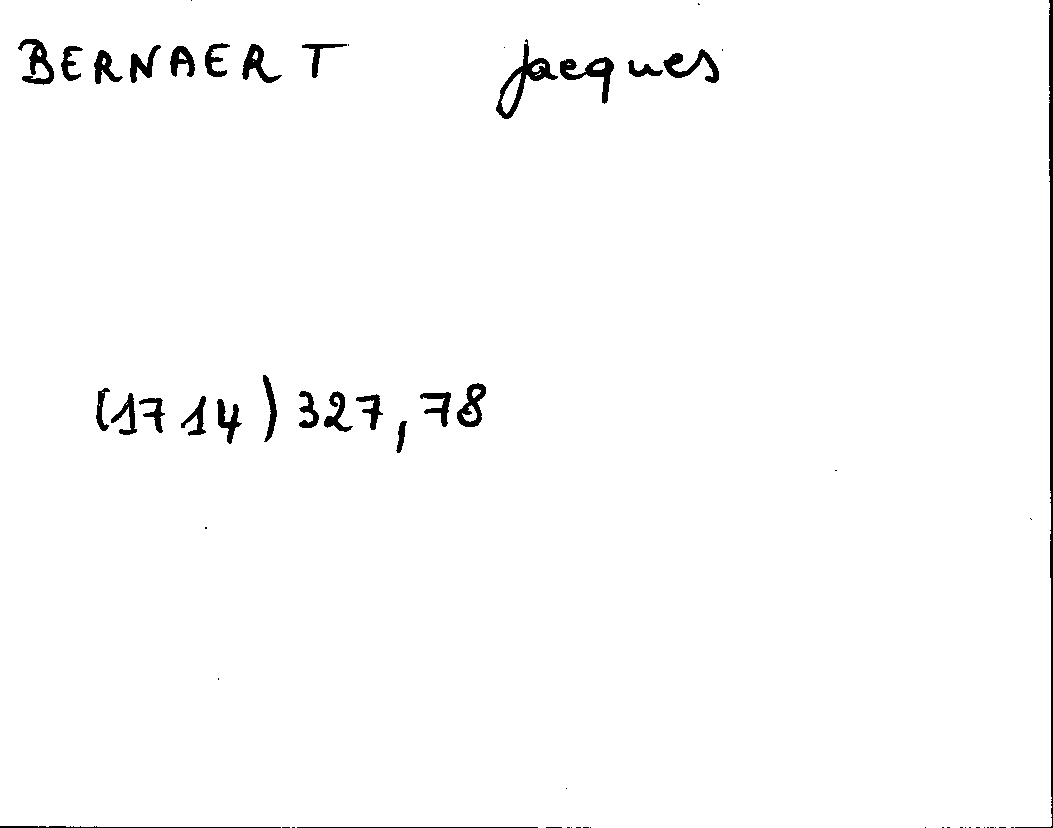 BERNAERT Jacques
(1714) 327,78